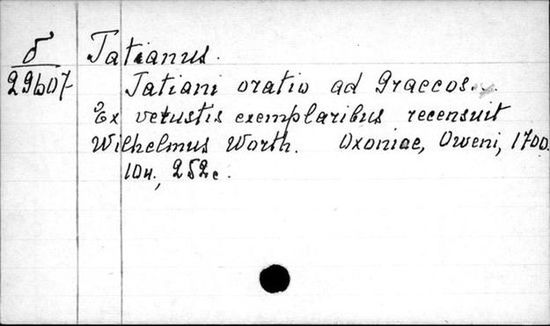 δ Tatianus.
29607 Tatiani oratio ad Graecos.
Ex vetustis exemplaribus recensuit
Wilhelmus Worth. Oxoniae, Oweni, 1700.
10н., 252c.